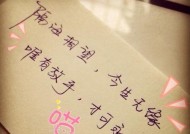 隔海相望，今生无缘
唯有放手，才可
喵